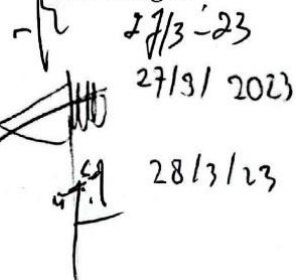 27/3-23
27/9/2023
28/3/23